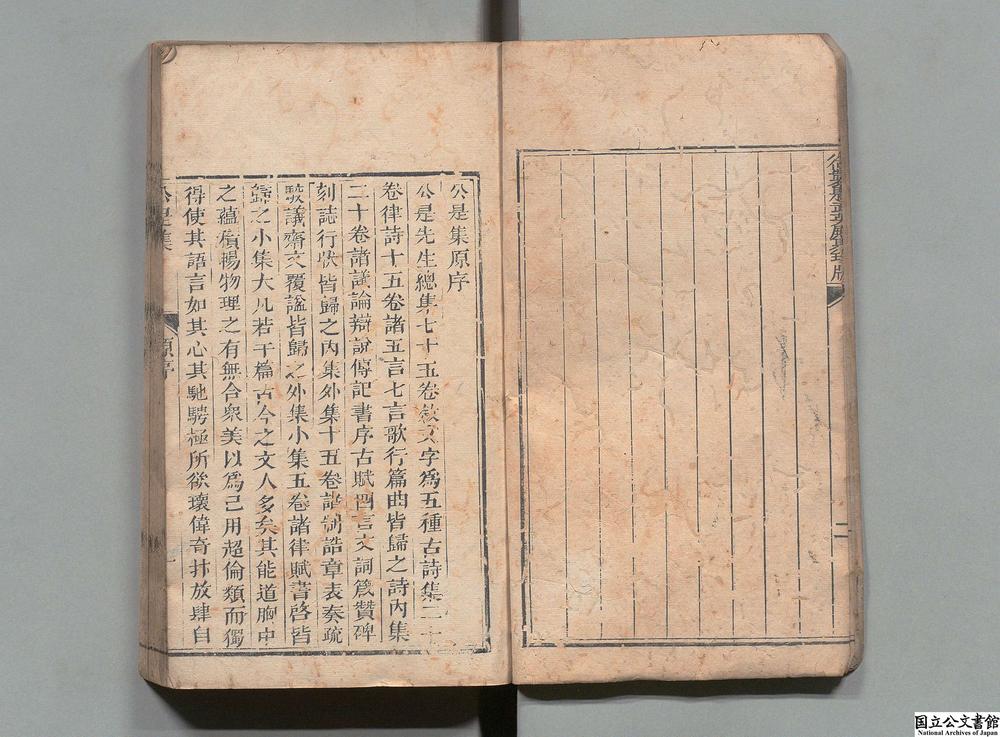 公是集原序
公是先生總集七十五卷敘文字爲五種古詩集二十
卷律詩十五卷諸五言七言歌行篇曲皆歸之詩內集
二十卷諸議論辯說傳記書序古賦四言文詞箴贊碑
刻誌行狀皆歸之內集外集十五卷諸制誥章表奏疏
駮議齋文覆諡皆歸之外集小集五卷諸律賦書啓皆
歸之小集大凡若干篇古今之文人多矣其能道胸中
之蘊積暢物理之有無合衆美以爲己用超倫類而獨
得使其語言如其心其馳騁極所欲瓌偉奇抃放肆自
公是集
原序
一
二
国立公文書館
National Archives of Japan